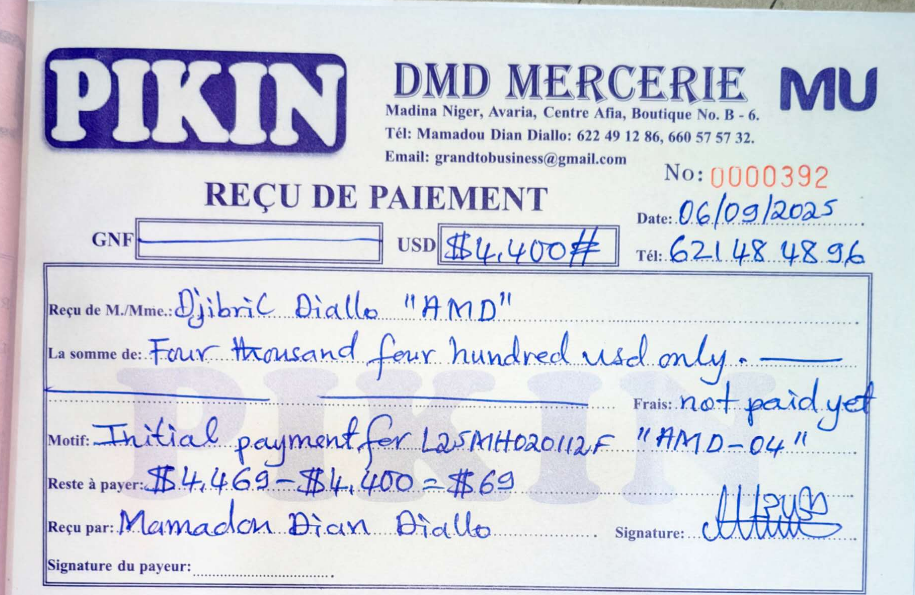 PIKIN
DMD MERCERIE
MU
Madina Niger, Avaria, Centre Afia, Boutique No. B - 6.
Tél: Mamadou Dian Diallo: 622 49 12 86, 660 57 57 32.
Email: grandtobusiness@gmail.com
No: 0000392
REÇU DE PAIEMENT
Date: 06/09/2025
GNF
USD $4,400#
Tél: 621 48 48 96
Reçu de M./Mme.: Djibril Diallo "AMD"
La somme de: Four thousand four hundred usd only.
Frais: not paid yet
Motif: Initial payment for L25MH020112F "AMD-04"
Reste à payer: $4,469-$4,400=$69
Reçu par: Mamadou Dian Diallo
Signature:
Signature du payeur:
PIKIN